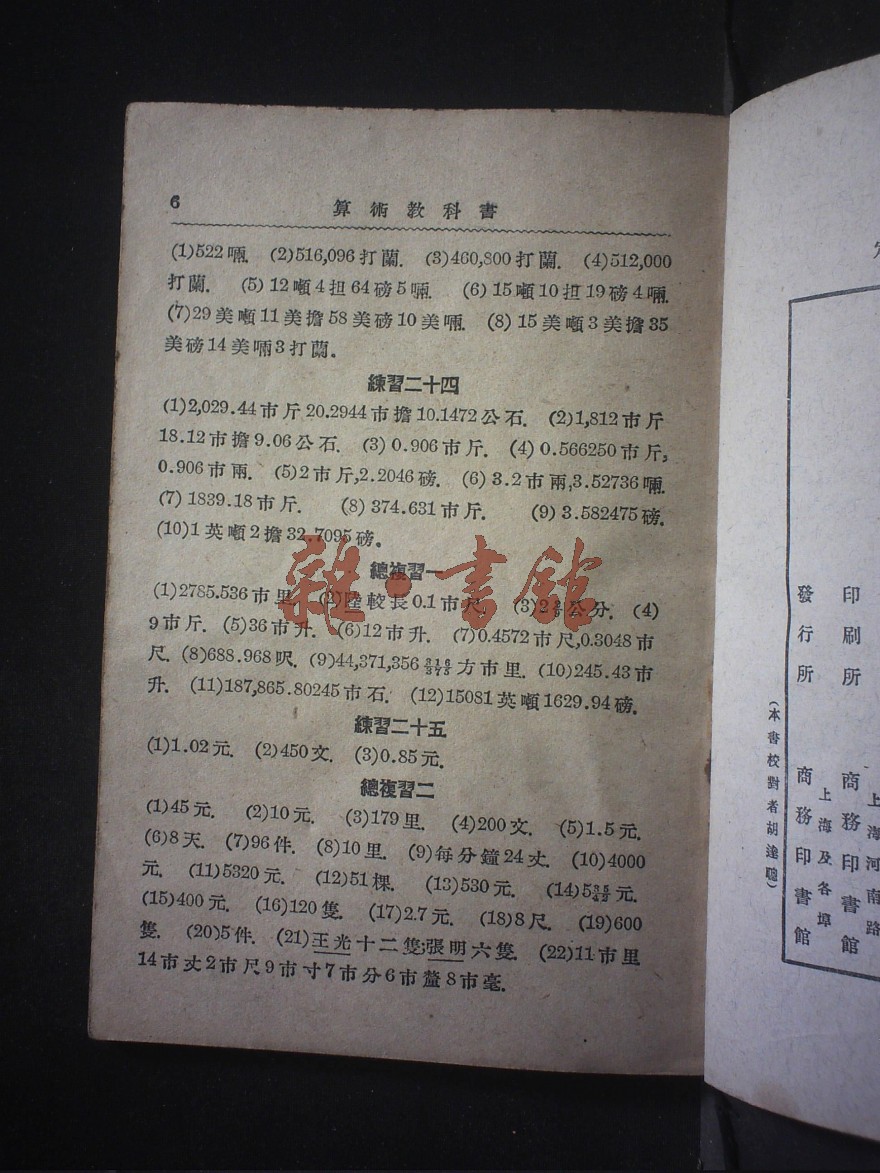 6
算術教科書
(1)522啢. (2)516,096打蘭. (3)460,800打蘭. (4)512,000
打蘭. (5)12噸4担64磅5啢. (6)15噸10担19磅4啢.
(7)29美噸11美擔58美磅10美啢. (8)15美噸3美擔35
美磅14美啢3打蘭。
練習二十四
(1)2,029.44市斤20.2944市擔10.1472公石. (2)1,812市斤
18.12市擔9.06公石. (3)0.906市斤. (4)0.566250市斤,
0.906市兩. (5)2市斤,2.2046磅. (6)3.2市兩,3.52736啢.
(7)1839.18市斤. (8)374.631市斤. (9)3.582475磅.
(10)1英噸2擔32.7095磅。
總複習一
(1)2785.536市里. (2)陸較長0.1市尺. (3)2公分. (4)
9市斤. (5)36市升. (6)12市升. (7)0.4572市尺,0.3048市
尺. (8)688.968呎. (9)44,371,356方市里. (10)245.43市
升. (11)187,865.80245市石. (12)15081英噸1629.94磅.
練習二十五
(1)1.02元. (2)450文. (3)0.85元.
總複習二
(1)45元. (2)10元. (3)179里. (4)200文. (5)1.5元.
(6)8天. (7)96件. (8)10里. (9)每分鐘24丈. (10)4000
元. (11)5320元. (12)51棵. (13)530元. (14)5元.
(15)400元. (16)120隻. (17)2.7元. (18)8尺. (19)600
隻. (20)5件. (21)王光十二隻;張明六隻. (22)11市里
14市丈2市尺9市寸7市分6市釐8市毫.
雜·書館
印刷所
上海河南路
商務印書館
發行所
上海及各埠
商務印書館
(本書校對者胡達聰)